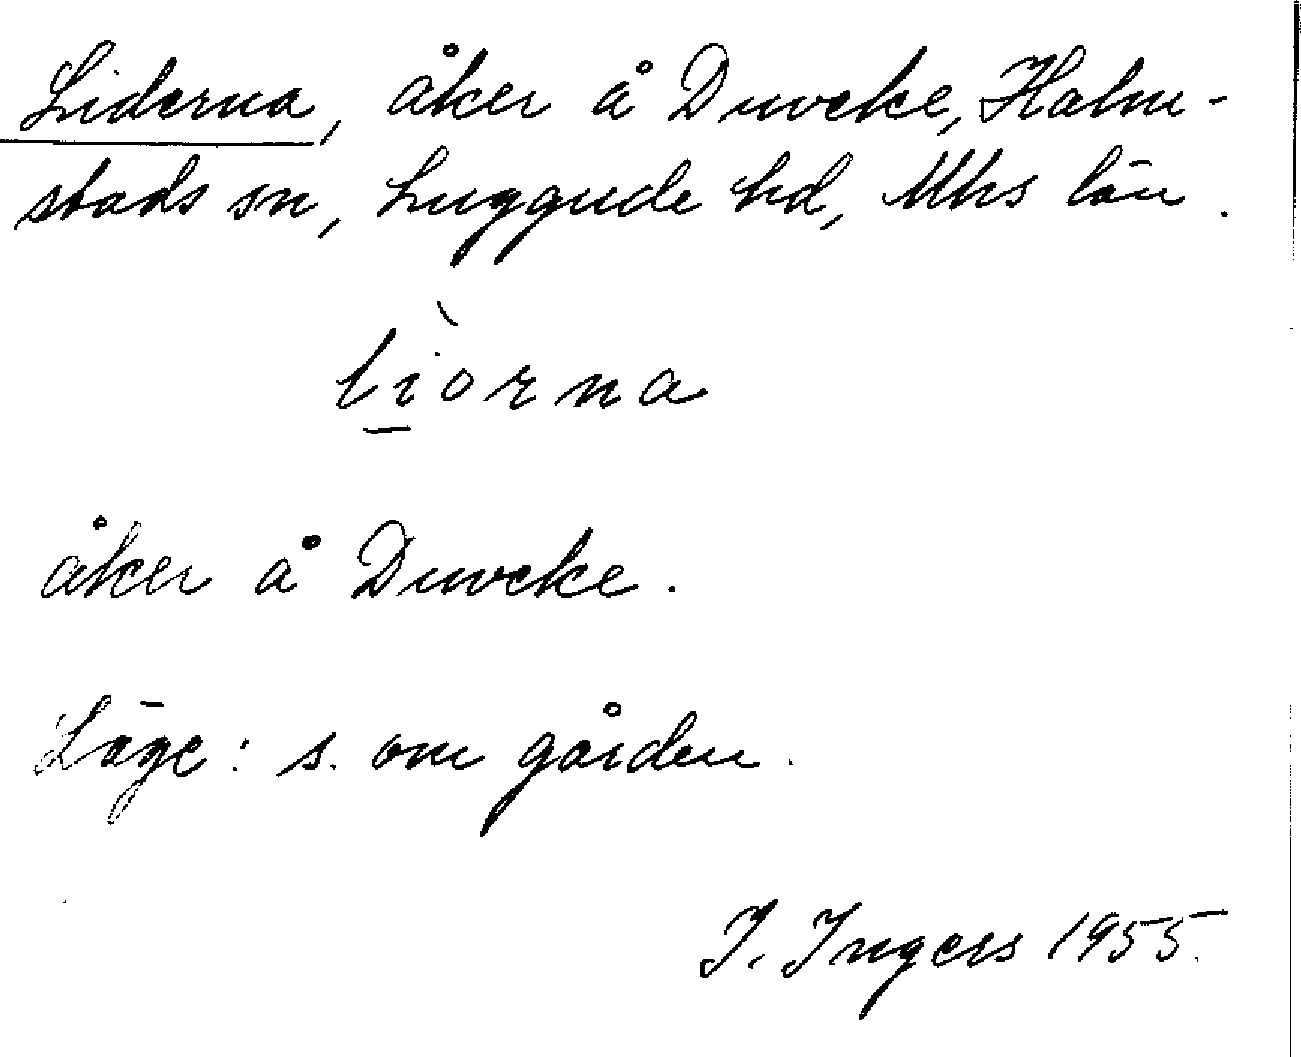 Liderna, åker å Duveke, Halm-
stads sn, Luggude hd, Mhs län.
lì̠orna
åker å Duveke.
Läge: s. om gården.
I. Ingers 1955.